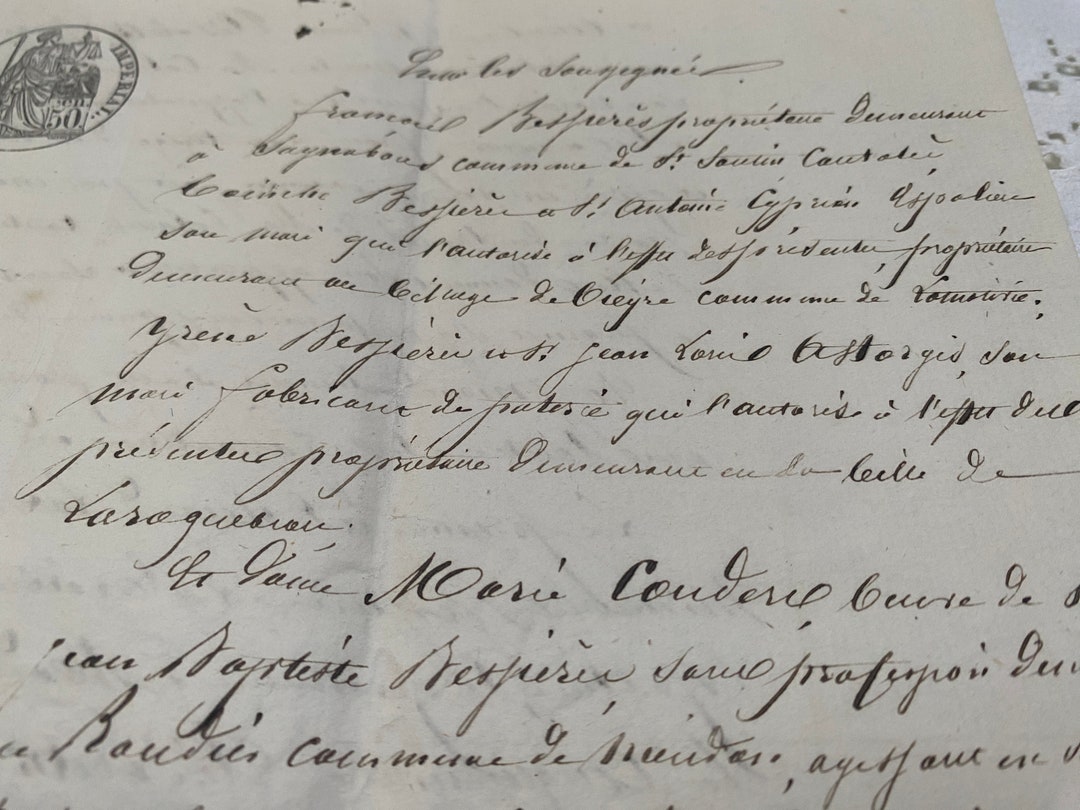 IMPERIAL
50
les soussignés
françois Bessières propriétaire demeurant
à commune de St Santin Cantalès
Bessière et St Antoine Cyprien Espalieu
son mari qui l'autorise à l'effet des présentes propriétaire
demeurant au village de commune de
yrène Bessière et St jean Louis Astorgis son
mari fabricant de poterie qui l'autorise à l'effet des
présentes propriétaire demeurant en la ville de
Laroquebrou.
Et dame Marie Couderc veuve de
jean Baptiste Bessière sans profession
commune de agissant en